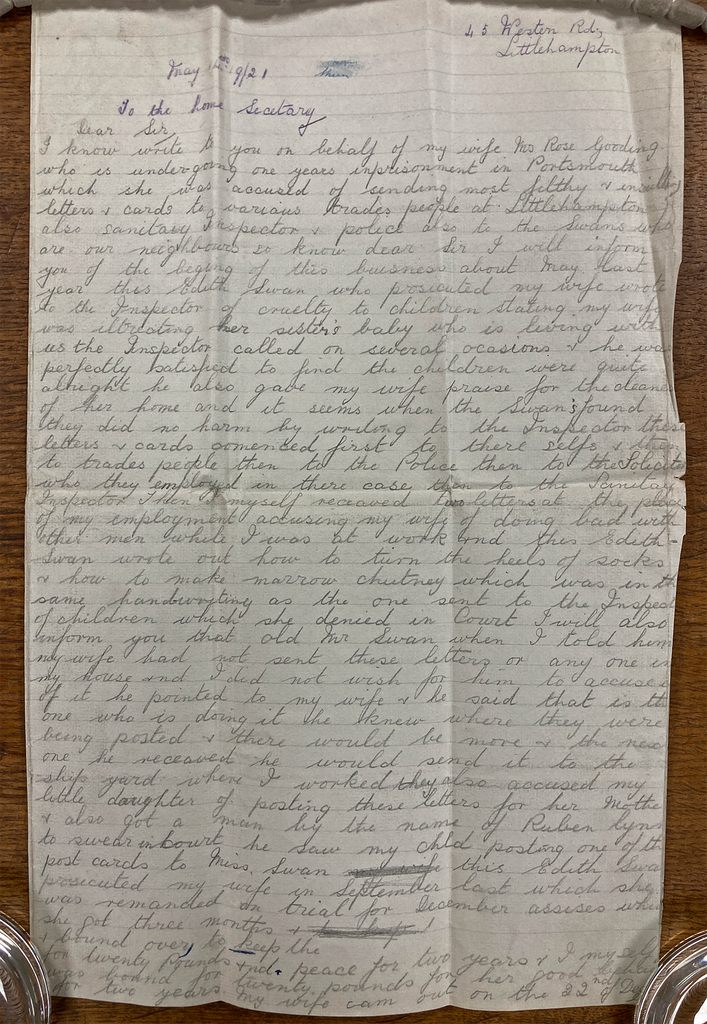 45 Western Rd;
Littlehampton
May 9/21
To the home Secetary
Dear Sir,
I know write to you on behalf of my wife Mrs Rose Gooding
who is undergoing one years inprisonment in Portsmouth
which she was accused of sending most filthy & insulting
letters & cards to various trades people at Littlehampton
also sanitary Inspector & police also to the Swans who
are our neighbours so know dear Sir I will inform
you of the beging of this buisness about May last
year this Edith Swan who prosicuted my wife wrote
to the Inspector of cruelty to children stating my wife
was illtreating her sister's baby who is living with
us the Inspector called on several ocasions & he was
perfectly satisfied to find the children were quite
alright he also gave my wife praise for the cleanes
of her home and it seems when the Swan's found
they did no harm by writing to the Inspector these
letters & cards comenced first to there selfs & then
to trades people then to the Police then to the Solicitor
who they employed in there case then to the Sanitary
Inspector Then I myself receaved two letters at the place
of my employment accusing my wife of doing bad with
other men while I was at work and this Edith
Swan wrote out how to turn the heels of socks
& how to make marrow chutney which was in th
same handwriting as the one sent to the Inspec
of children which she denied in Court I will also
inform you that old Mr Swan when I told him
my wife had not sent these letters or any one in
my house and I did not wish for him to accuse
of it he pointed to my wife & he said that is the
one who is doing it he knew where they were
being posted & there would be more & the nex
one he receaved he would send it to the
ship yard where I worked they also accused my
little daughter of posting these letters for her Mothe
& also got a man by the name of Ruben Lyn
to swear in Court he saw my chld posting one of th
post cards to Miss. Swan this Edith Swa
prosicuted my wife in September last which she
was remanded on trial for December assises whe
she got three months &
& bound over to keep the
for twenty Pounds and peace for two years & I myself
was bound for twenty pounds for her good
for two years. My wife cam out on the 22nd of